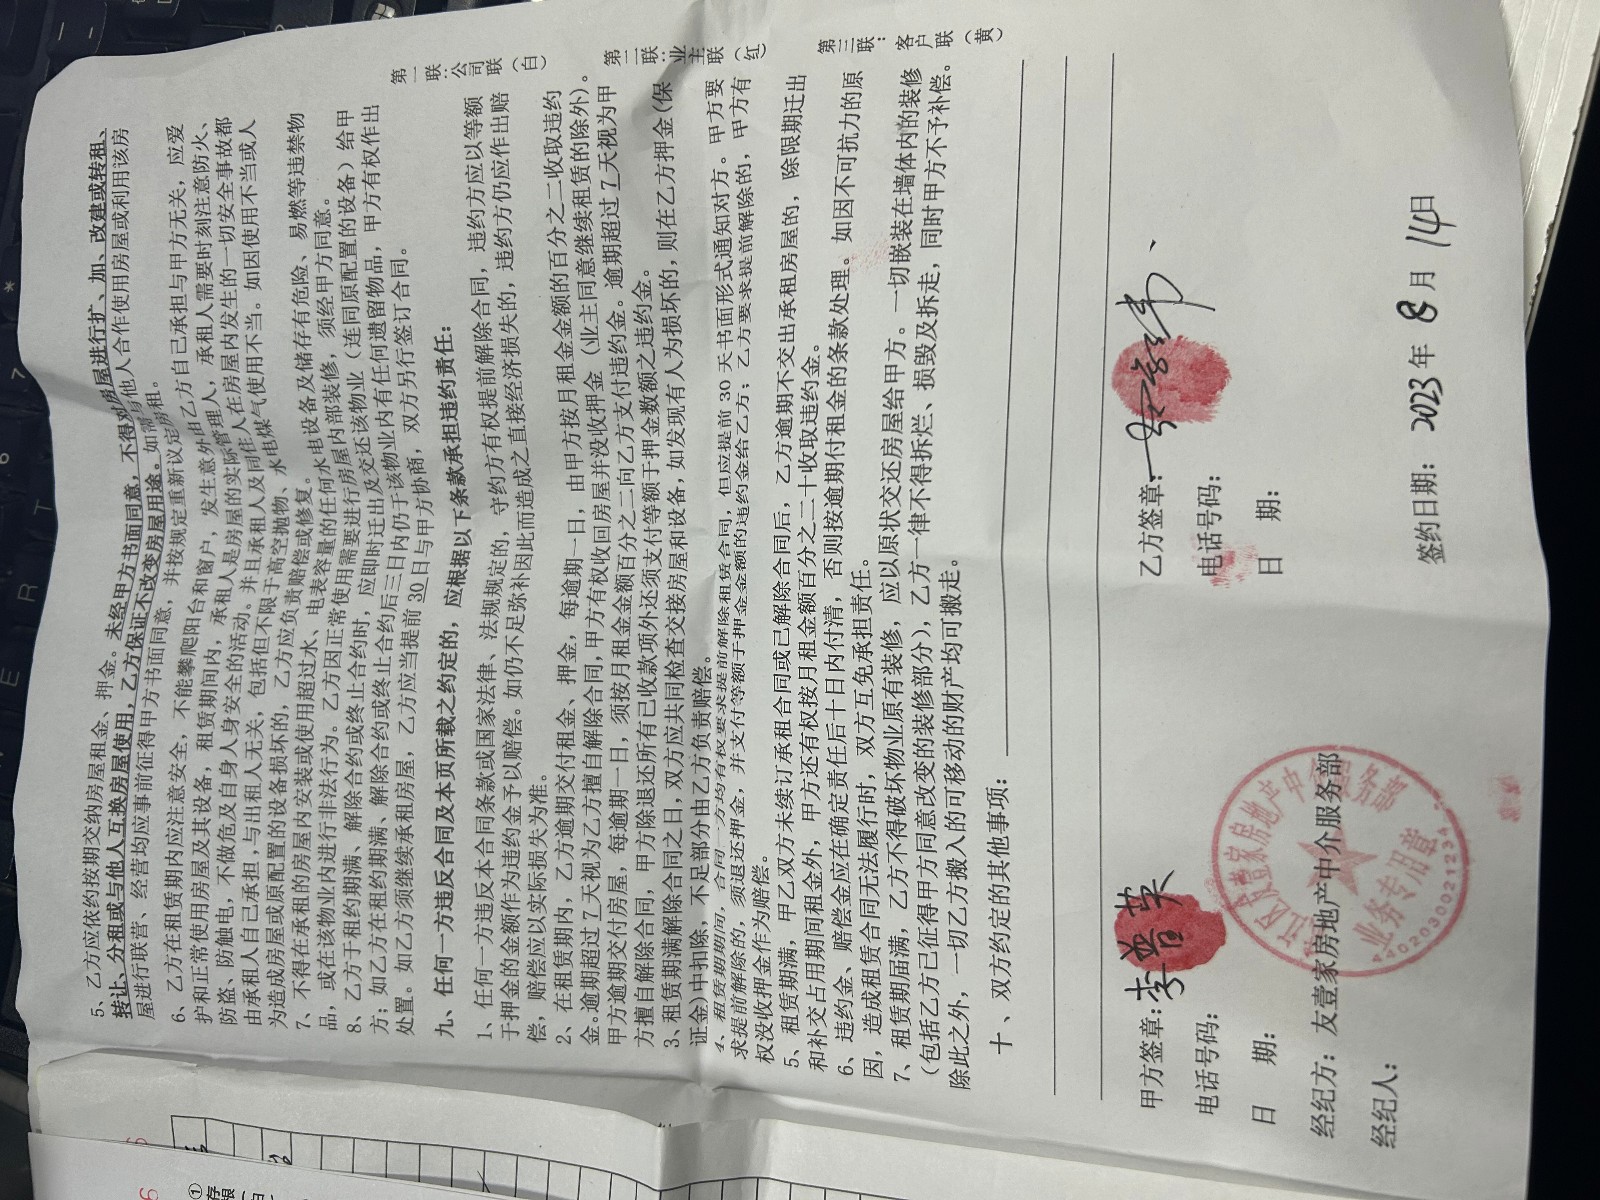 5、乙方应依约按期交纳房屋租金、押金。未经甲方书面同意，不得对房屋进行扩、加、改建或转租、
转让、分租或与他人互换房屋使用，乙方保证不改变房屋用途。如需与他人合作使用房屋或利用该房
屋进行联营、经营均应事前征得甲方书面同意，并按规定重新议定房租。
6、乙方在租赁期内应注意安全，不能攀爬阳台和窗户，发生意外由乙方自己承担与甲方无关，应爱
护和正常使用房屋及其设备，租赁期间内，承租人是房屋的实际管理人，承租人需要时刻注意防火、
防盗、防触电，不做危及自身人身安全的活动。并且承租人及同住人在房屋内发生的一切安全事故都
由承租人自己承担，与出租人无关，包括但不限于高空抛物、水电煤气使用不当。如因使用不当或人
为造成房屋或原配置的设备损坏的，乙方应负责赔偿或修复。
7、不得在承租的房屋内安装或使用超过水、电表容量的任何水电设备及储存有危险、易燃等违禁物
品，或在该物业内进行非法行为。乙方因正常使用需要进行房屋内部装修，须经甲方同意。
8、乙方于租约期满、解除合约或终止合约时，应即时迁出及交还该物业（连同原配置的设备）给甲
方；如乙方在租约期满、解除合约或终止合约后三日内仍于该物业内有任何遗留物品，甲方有权作出
处置。如乙方须继续承租房屋，乙方应当提前 30 日与甲方协商，双方另行签订合同。
九、任何一方违反合同及本页所载之约定的，应根据以下条款承担违约责任：
1、任何一方违反本合同条款或国家法律、法规规定的，守约方有权提前解除合同，违约方应以等额
于押金的金额作为违约金予以赔偿。如仍不足弥补因此而造成之直接经济损失的，违约方仍应作出赔
偿，赔偿应以实际损失为准。
2、在租赁期内，乙方逾期交付租金、押金，每逾期一日，由甲方按月租金金额的百分之二收取违约
金。逾期超过 7 天视为乙方擅自解除合同，甲方有权收回房屋并没收押金（业主同意继续租赁的除外）。
甲方逾期交付房屋，每逾期一日，须按月租金金额百分之二向乙方支付违约金。逾期超过 7 天视为甲
方擅自解除合同，甲方除退还所有已收款项外还须支付等额于押金数额之违约金。
3、租赁期满解除合同之日，双方应共同检查交接房屋和设备，如发现有人为损坏的，则在乙方押金（保
证金）中扣除，不足部分由乙方负责赔偿。
4、租赁期期间，合同一方均有权要求提前解除租赁合同，但应提前 30 天书面形式通知对方。甲方要
求提前解除的，须退还押金，并支付等额于押金金额的违约金给乙方；乙方要求提前解除的，甲方有
权没收押金作为赔偿。
5、租赁期满，甲乙双方未续订承租合同或已解除合同后，乙方逾期不交出承租房屋的，除限期迁出
和补交占用期间租金外，甲方还有权按月租金额百分之二十收取违约金。
6、违约金、赔偿金应在确定责任后十日内付清，否则按逾期付租金的条款处理。如因不可抗力的原
因，造成租赁合同无法履行时，双方互免承担责任。
7、租赁期届满，乙方不得破坏物业原有装修，应以原状交还房屋给甲方。一切嵌装在墙体内的装修
（包括乙方已征得甲方同意改变的装修部分），乙方一律不得拆烂、损毁及拆走，同时甲方不予补偿。
除此之外，一切乙方搬入的可移动的财产均可搬走。
十、双方约定的其他事项：
第一联：公司联（白）
第二联：业主联（红）
第三联：客户联（黄）
甲方签章：李普英
电话号码：
日 期：
乙方签章：
电话号码：
日 期：
经纪方：友壹家房地产中介服务部
经纪人：
签约日期：2023 年 8 月 14 日
江区友壹家房地产中介服务部
业务专用章